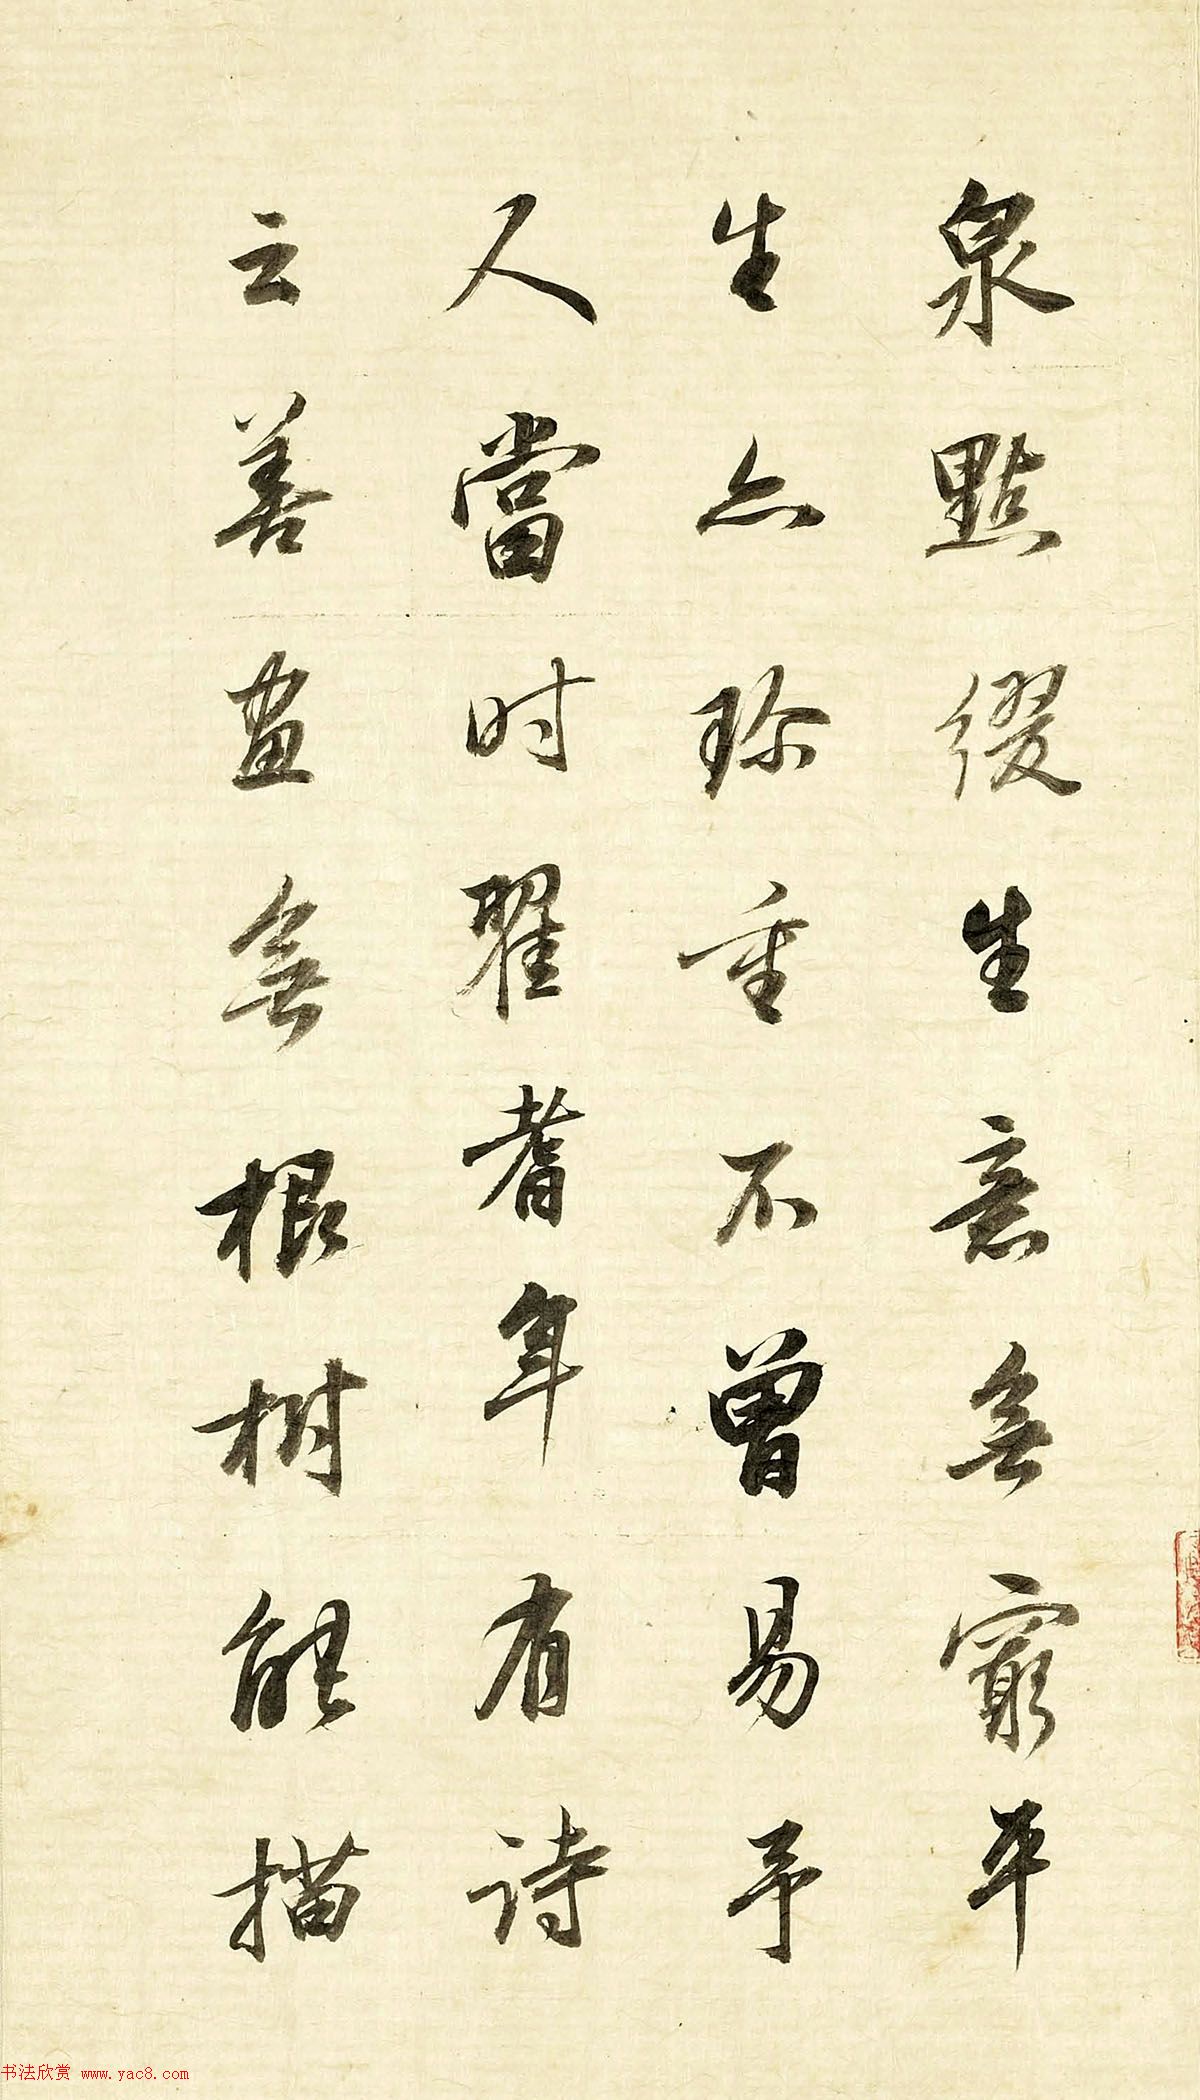 泉點綴生意無窮平
生亦珍重不曾易予
人當时瞿耆年有詩
云善畫無根樹能描
书法欣赏 www.yac8.com